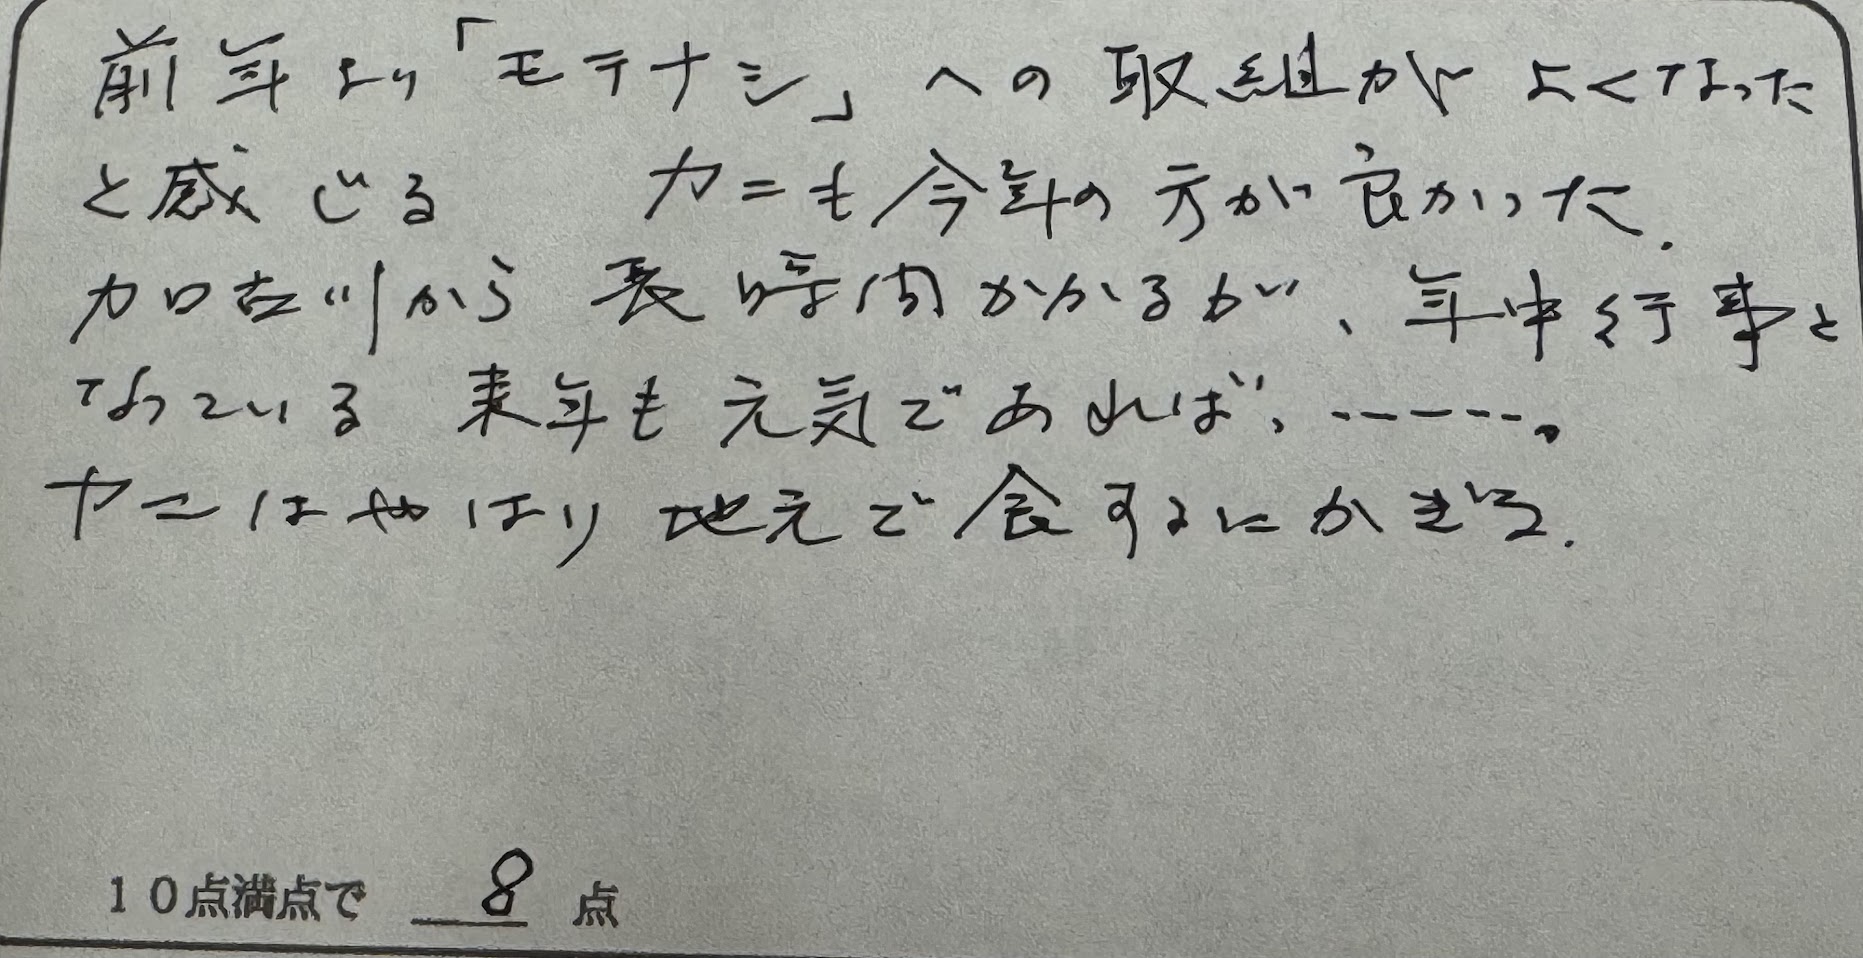 前年より「モテナシ」への取組がよくなった
と感じる　カニも今年の方が良かった.
加古川から長時間かかるが、年中行事と
なっている 来年も元気であれば、------。
カニはやはり地元で食するにかぎる.
10点満点で 8 点